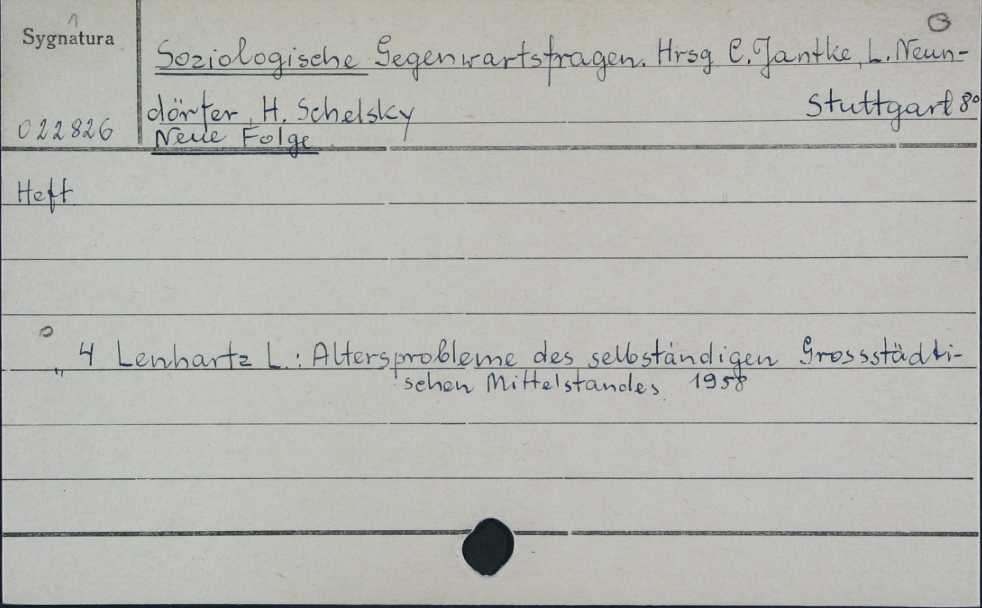 Sygnatura
Soziologische Gegenwartsfragen. Hrsg C. Jantke, L. Neun-
dörfer, H. Schelsky Stuttgart 8°
022826 Neue Folge
Heft
„ 4 Lenhartz L.: Altersprobleme des selbständigen Grossstädti-
schen Mittelstandes 1958